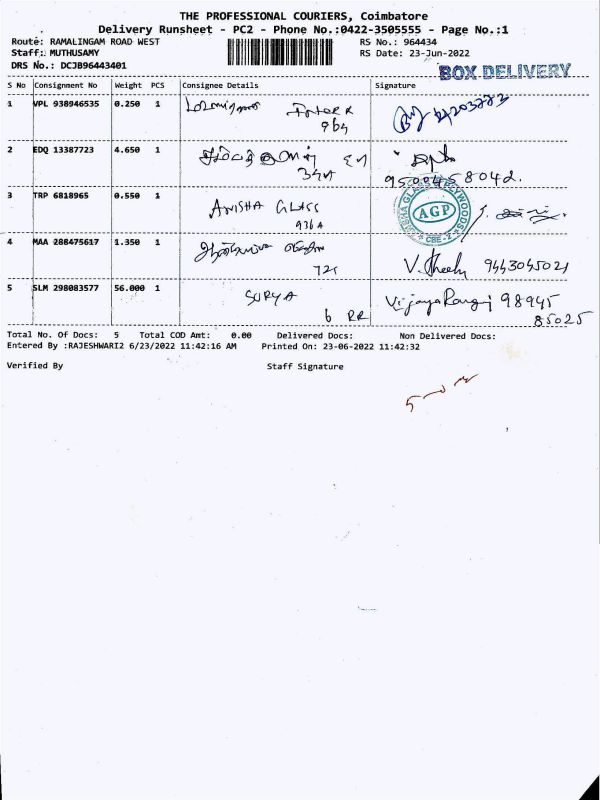 THE PROFESSIONAL COURIERS, Coimbatore
Delivery Runsheet - PC2 - Phone No.:0422-3505555 - Page No.:1
Route: RAMALINGAM ROAD WEST RS No.: 964434
Staff: MUTHUSAMY RS Date: 23-Jun-2022
DRS No.: DCJB96443401 BOX DELIVERY
S No Consignment No Weight PCS Consignee Details Signature
1 VPL 938946535 0.250 1
964
2 EDQ 13387723 4.650 1
9500458042.
3 TRP 6818965 0.550 1 ANISHA GLASS
936A
AGP
CBE-2
4 MAA 288475617 1.350 1
721 V. 9443045021
5 SLM 298083577 56.000 1 SURYA VijayaRangj 98945
6 RR 85025
Total No. Of Docs: 5 Total COD Amt: 0.00 Delivered Docs: Non Delivered Docs:
Entered By :RAJESHWARI2 6/23/2022 11:42:16 AM Printed On: 23-06-2022 11:42:32
Verified By Staff Signature